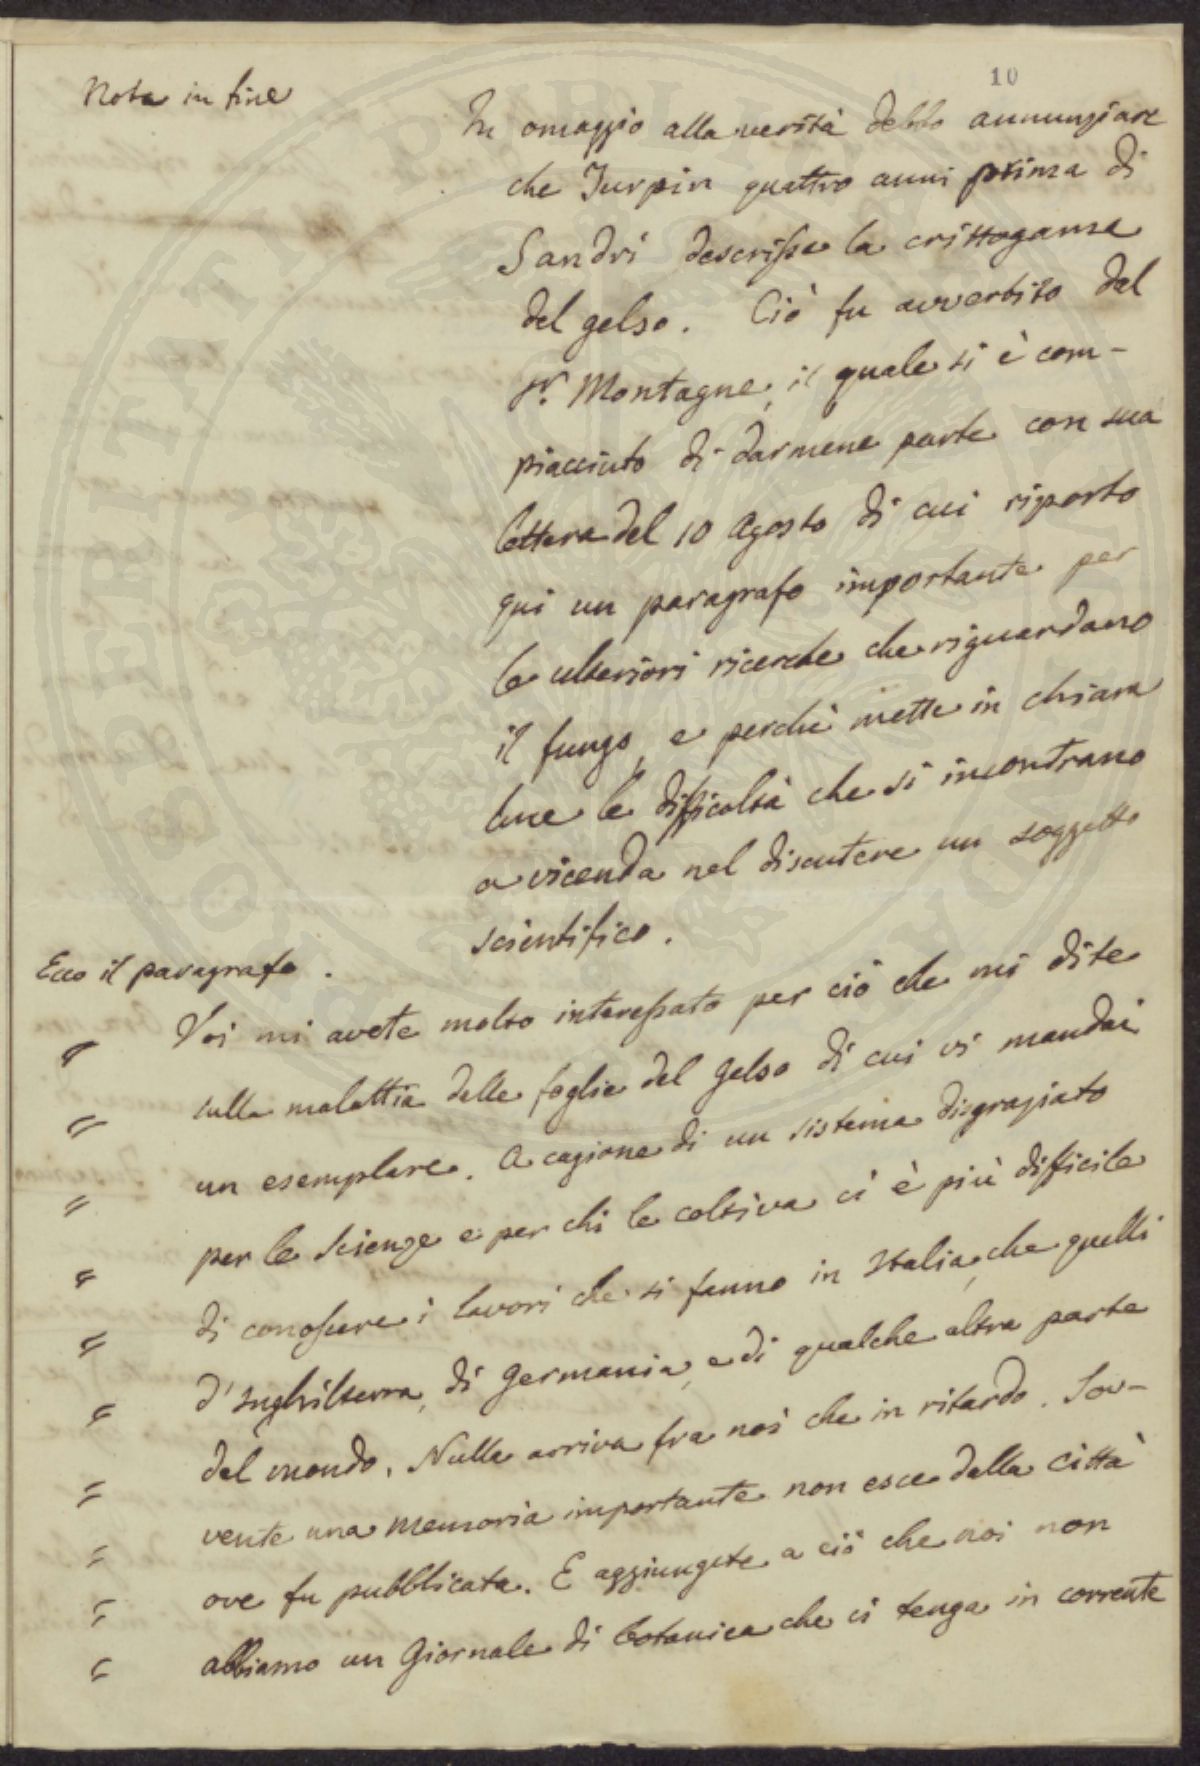 10
Nota in fine
In omaggio alla verità debbo annunziare
che Turpin quattro anni prima di
Sandri descrisse la crittogama
del gelso. Ciò fu avvertito dal
Sr. Montagne, il quale si è com-
piacciuto di darmene parte con sua
lettera del 10 Agosto di cui riporto
qui un paragrafo importante per
le ulteriori ricerche che riguardano
il fungo, e perchè mette in chiara
luce le difficoltà che si incontrano
a vicenda nel discutere un soggetto
scientifico.
Ecco il paragrafo.
" Voi mi avete molto interessato per ciò che mi dite
" sulla malattia delle foglie del Gelso di cui vi mandai
" un esemplare. A cagione di un sistema disgraziato
" per le Scienze e per chi le coltiva ci è più difficile
" di conoscere i lavori che si fanno in Italia, che quelli
" d'Inghilterra, di Germania, e di qualche altra parte
" del mondo. Nulla arriva fra noi che in ritardo. Sov-
" vente una memoria importante non esce dalla città
" ove fu pubblicata. E aggiungete a ciò che noi non
" abbiamo un Giornale di botanica che ci tenga in corrente
PROSPERITATI PUBLICAE